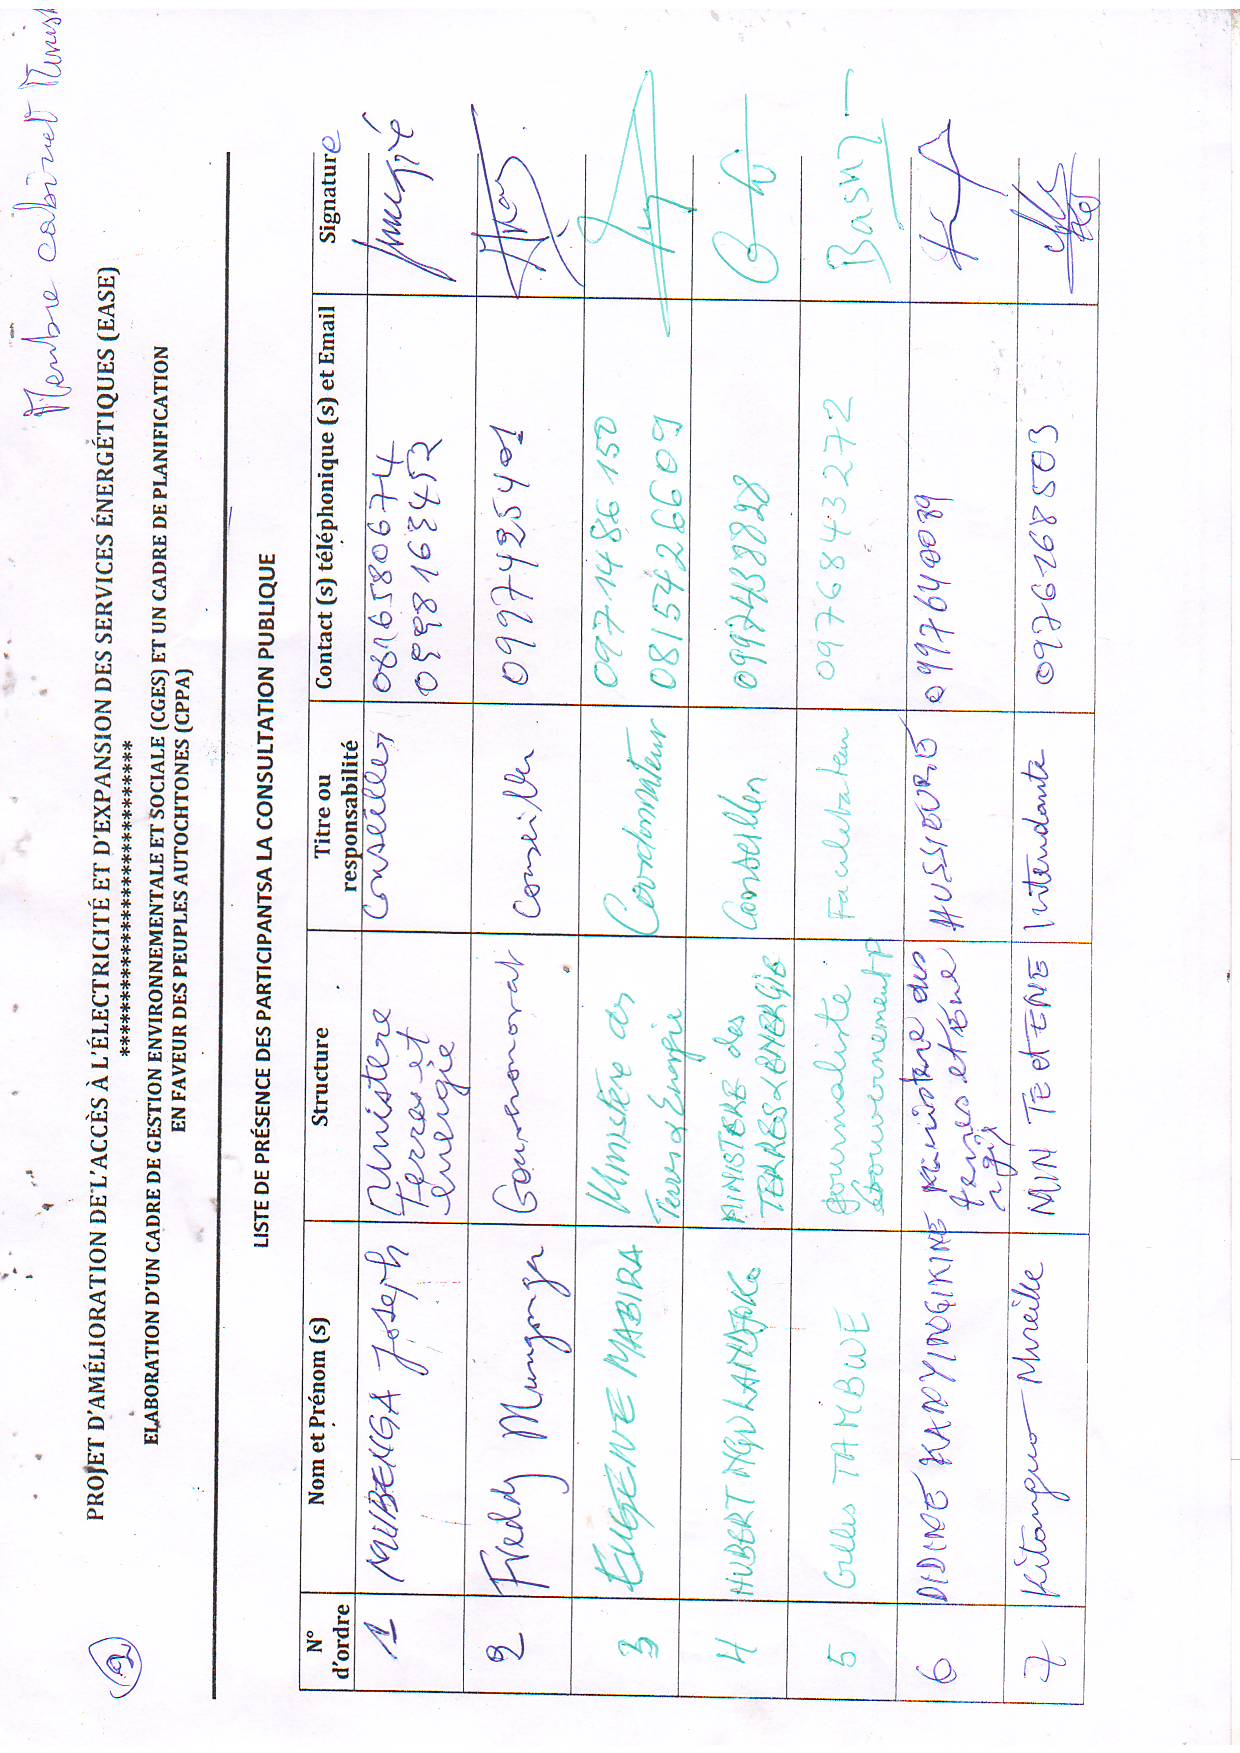 Membre cabinet Minist
2
PROJET D'AMÉLIORATION DE L'ACCÈS À L'ÉLECTRICITÉ ET D'EXPANSION DES SERVICES ÉNERGÉTIQUES (EASE)
******************************
ELABORATION D'UN CADRE DE GESTION ENVIRONNEMENTALE ET SOCIALE (CGES) ET UN CADRE DE PLANIFICATION
EN FAVEUR DES PEUPLES AUTOCHTONES (CPPA)
LISTE DE PRÉSENCE DES PARTICIPANTSA LA CONSULTATION PUBLIQUE
N° d'ordre Nom et Prénom (s) Structure Titre ou responsabilité Contact (s) téléphonique (s) et Email Signature
1 MUBENGA Joseph Ministere Terres et energie Conseiller 0816580674
0998163452
2 Freddy Munganga Gouvernorat Conseiller 0997425401
3 EUGENE MABIRA Ministère des Terres & Energie Coordonnateur 0971486150
0815426609
4 HUBERT MINISTERE des TERRES & ENERGIE Conseiller 0997438828
5 Gilles TAMBWE Journaliste Gouvernement P Facilitateur 0976843272 Basny
6 DIDINE KANYINGININE Ministere des terres et Energie HUSSIERE 0997640089
7 Kitangua Mireille MIN TE et ENE Intendante 0976268503